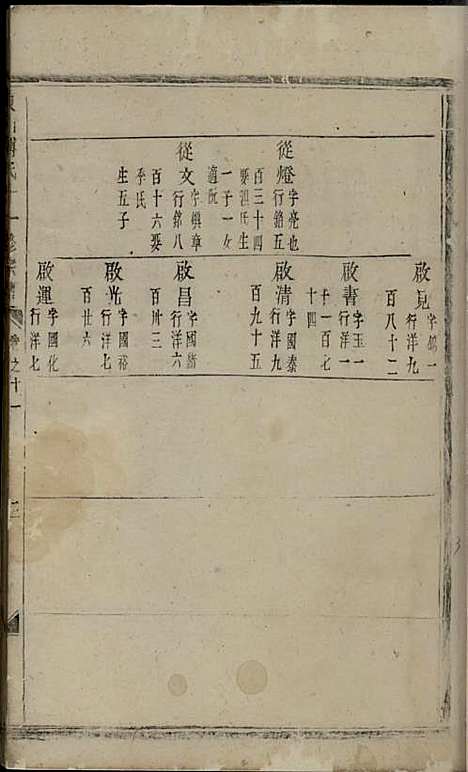 從燈
字亮也
行錦五
百三十四
娶祖氏生
一子一女
適阮
從文
字煥章
行錦八
百十六娶
李氏
生五子
啟見
行洋九
百八十二
啟書
字玉一
行洋一
千一百七
十四
啟清
字國泰
行洋九
百九十五
啟昌
字國
行洋六
百卅三
啟光
字國裕
百廿六
行洋七
啟運
字國化
行洋七
卷之十一
三